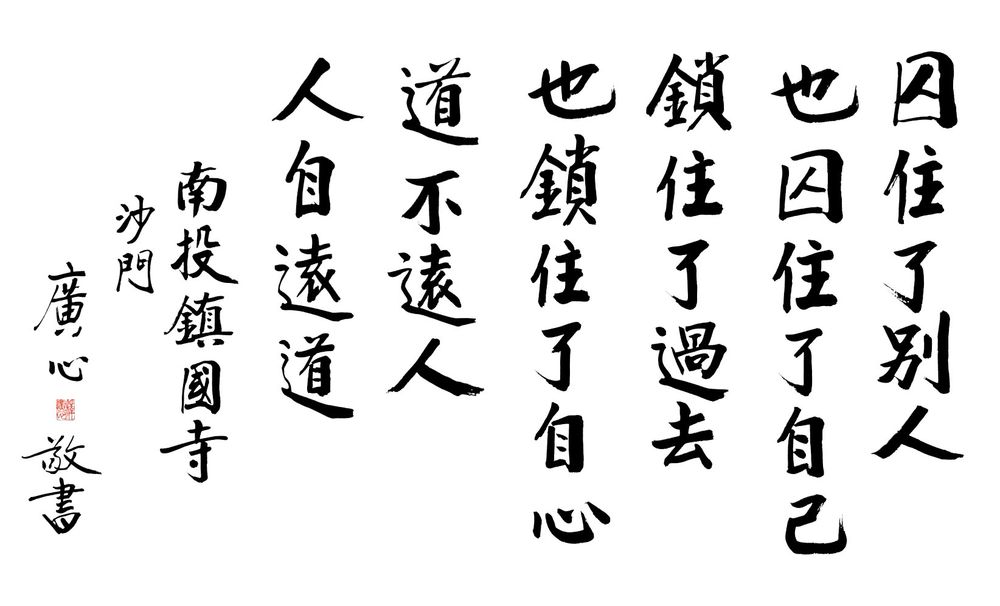 囚住了别人
也囚住了自己
鎖住了過去
也鎖住了自心
道不遠人
人自遠道
南投鎮國寺
沙門
廣心
敬書